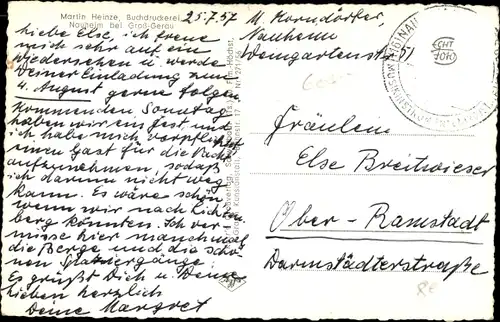 Martin Heinze, Buchdruckerei
Nauheim bei Groß-Gerau
25.7.57
Liebe Else, ich freue
mich sehr auf ein
Wiedersehen u. werde
Deiner Einladung zum
4. August gerne folgen.
Kommenden Sonntag
haben wir ein Fest und
ich habe mich verpflichtet
einen Gast für die Nacht
aufzunehmen, sodaß
ich darum nicht weg
kann. Es wäre schön,
wenn wir nach Lichten
berg könnten. Ich ver-
misse hier manchmal
die Berge und die schö
nen Spaziergänge.
Es grüßt Dich u. Deine
Lieben herzlich
Deine Margret
M. Korndörfer,
Nauheim
Weingartenstr. 51
ECHT
FOTO
Fräulein
Else Breitwieser
Ober-Ramstadt
Darmstädterstraße